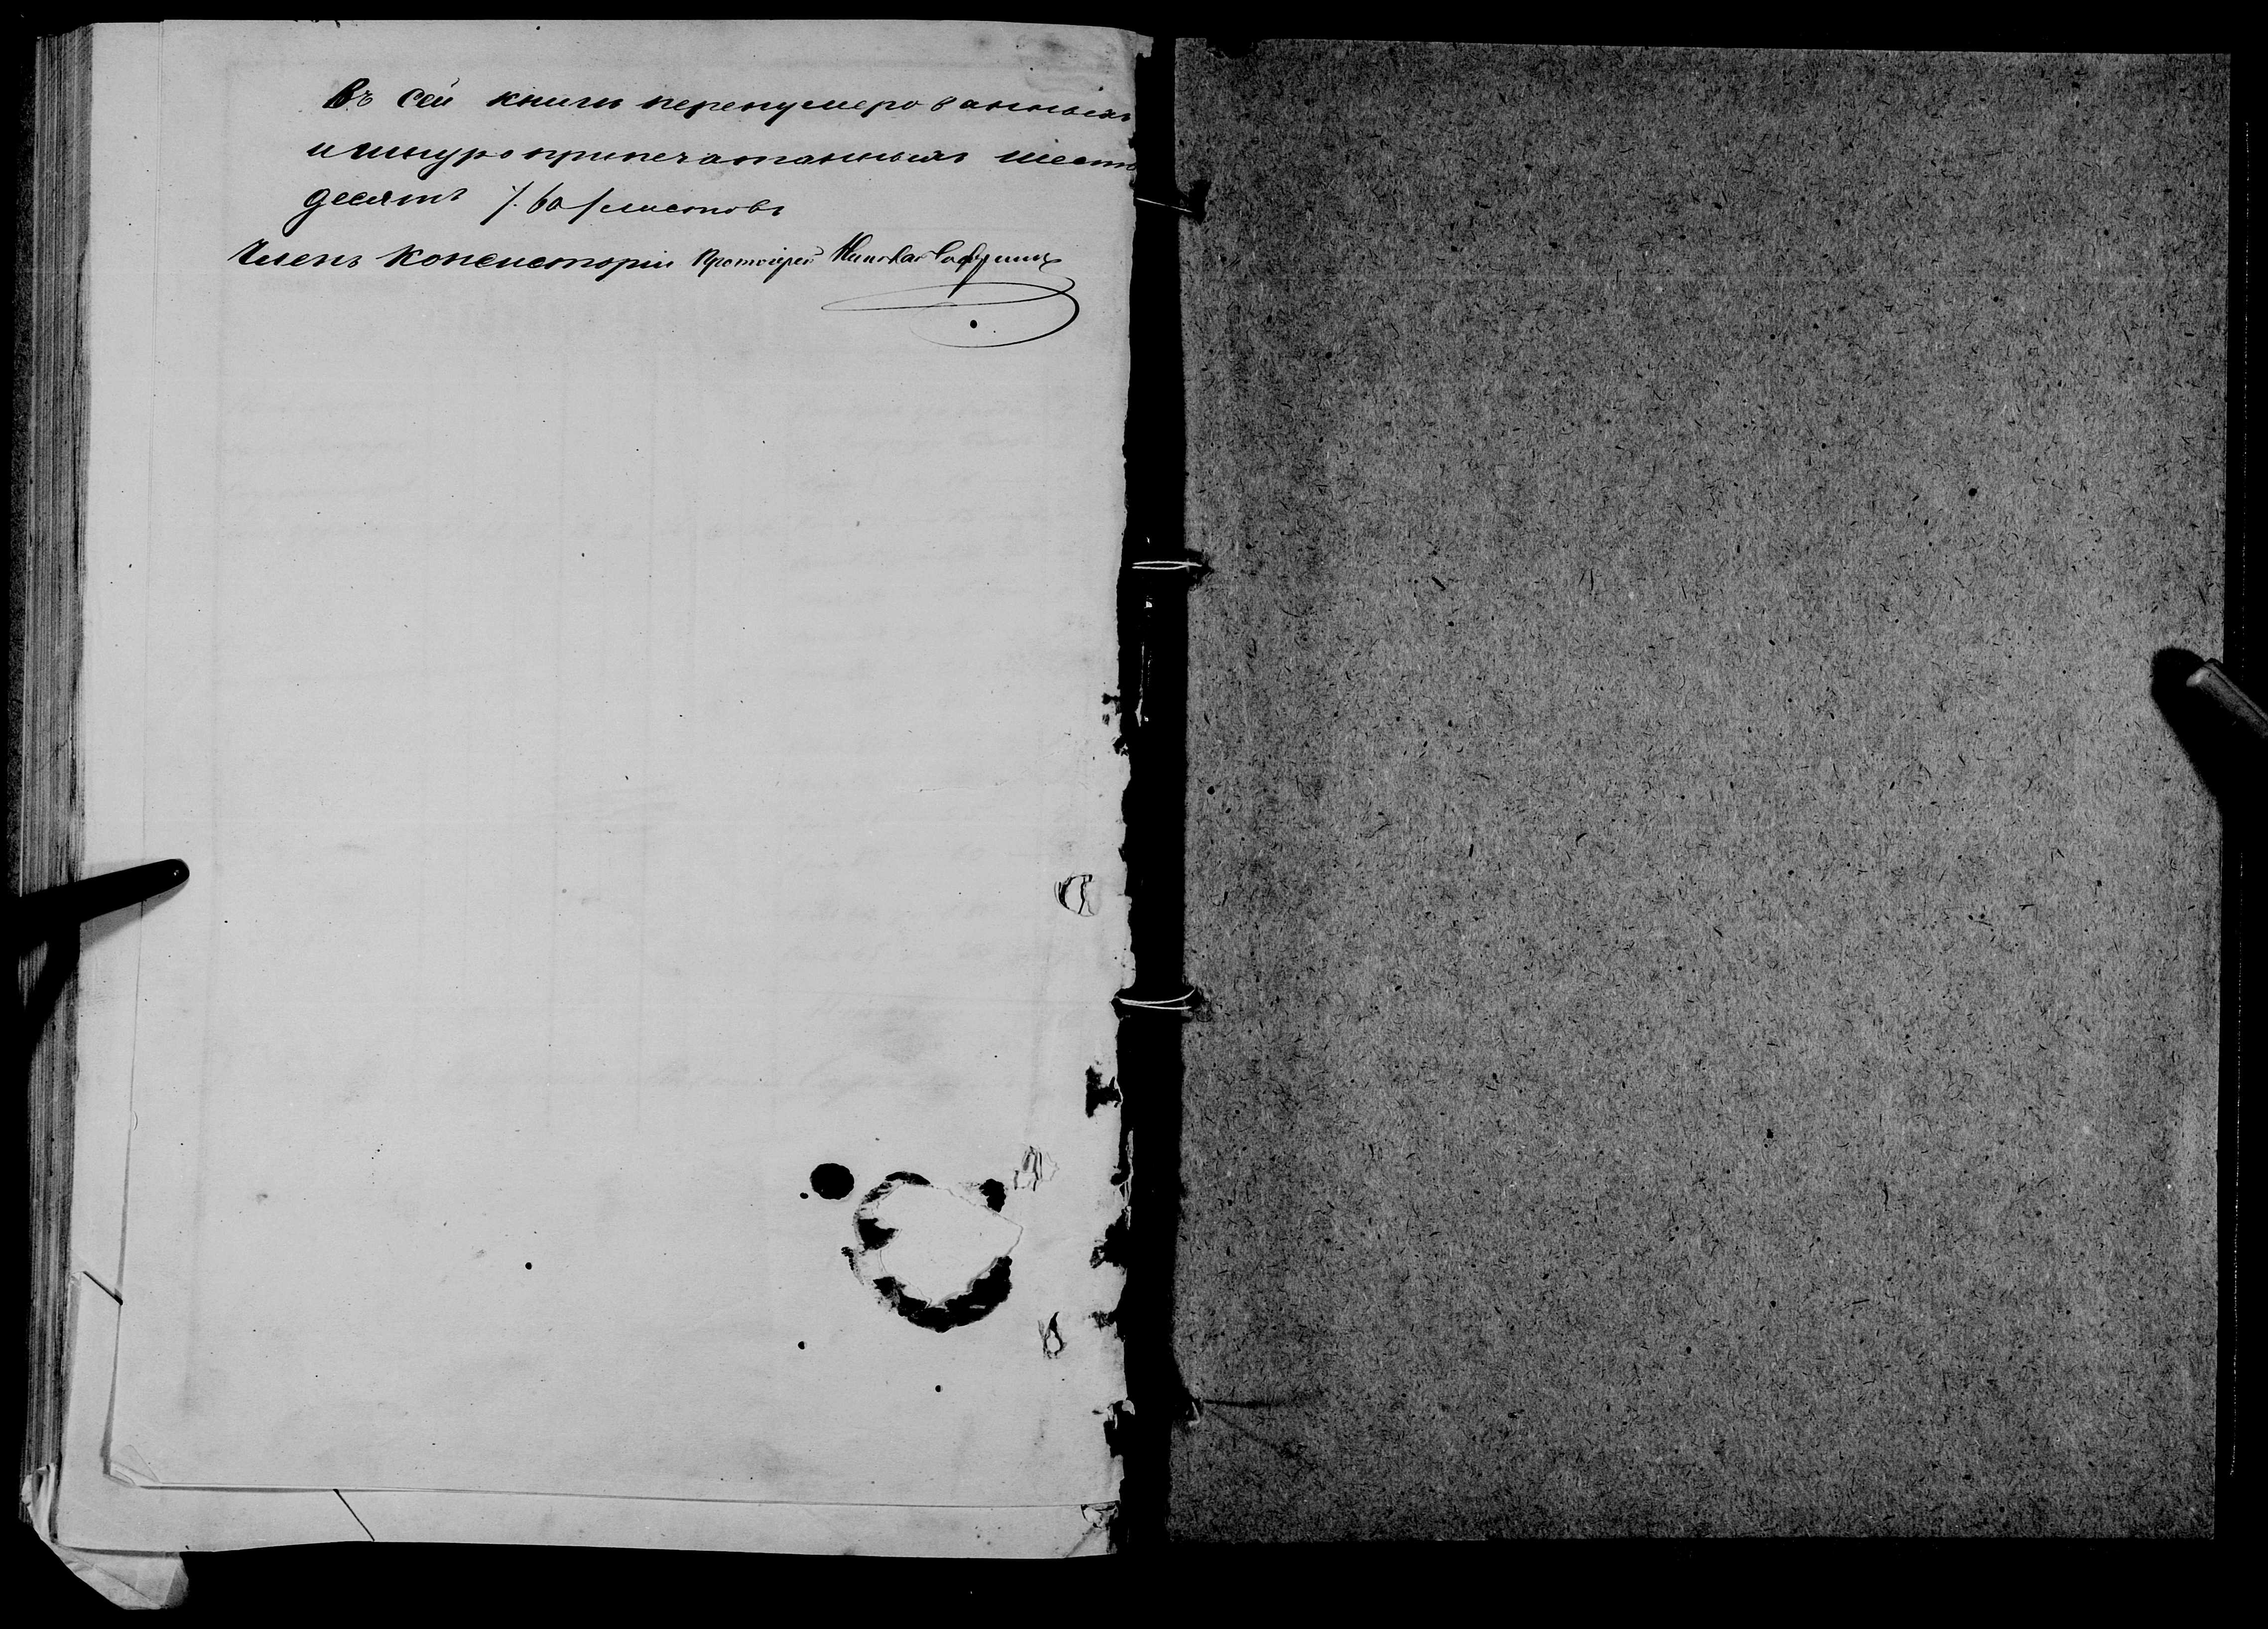 Въ сей книги перенумерованныхъ
и шнуроприпечатанныхъ шесть
десятъ /. 60 / листовъ
Членъ Консисторіи Протоіерей Николай